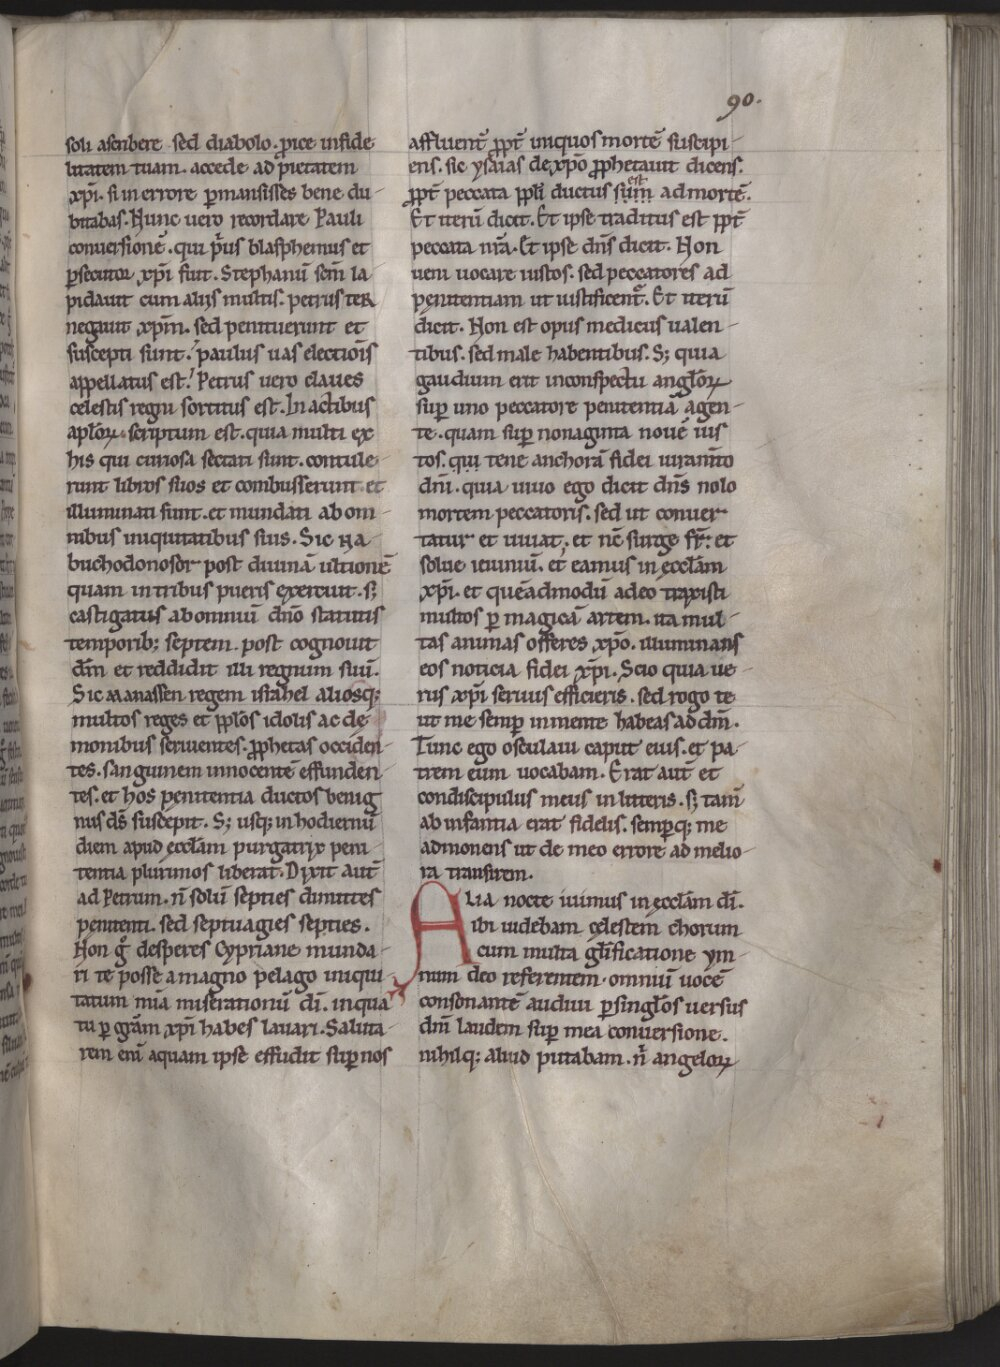 90.
soli ascribere sed diabolo. p̱ice infide
litatem tuam. accede ad pietatem
xp̄i. si in errore p̱mansisses bene du
bitabas. Nunc uero recordare Pauli
conuersionē. qui p̄us blasphemus et
p̱secutor xp̄i fiut. Stephanū sc̄m la
pidauit cum alijs multis. petrus ter
negauit xp̄m. sed penituerunt et
suscepti sunt. paulus uas electiōis
appellatus est. Petrus uero claues
celestis regni sortitus est. In actibus
aplōꝝ scriptum est. quia multi ex
his qui curiosa sectati sunt. contule
runt libros suos et combusserunt et
illuminati sunt. et mundati ab om
nibus iniquitatibus suis. Sic na
buchodonosor post diuinā ultionē
quam in tribus pueris exercuit. s;
castigatus ab omniū dn̄o statutis
temporib; septem. post cognouit
dm̄ et reddidit illi regnum suū.
Sic manassen regem israhel aliosq;
multos reges et pp̄los idolis ac de
monibus seruientes. ꝓphetas occiden
tes. sanguinem innocentē effunden
tes. et hos penitentia ductos benig
nus ds̄ suscepit. S; usq; in hodiernū
diem apud ecclām purgatrix peni
tentia plurimos liberat. Dixit autē
ad Petrum. n̄ solū septies dimittes
penitenti. sed septuagies septies.
Non g̊ desperes Cypriane munda
ri te posse a magno pelago iniqui
tatum mīa miserationū dī. in qua
tu p̱ grām xp̄i habes lauari. Saluta
rem enī aquam ipse effudit sup̱ nos
affluent̄ ꝓpt̄ iniquos mortē suscipi
ens. sic ysaias de xp̄o ꝓphetauit dicens.
ꝓpt̄ peccata pp̄li ductus sum est ad mortē.
Et iterū dicit. Et ipse traditus est ꝓpt̄
peccata nr̄a. Et ipse dn̄s dicit. Non
ueni uocare iustos. sed peccatores ad
penitentiam ut iustificent̄. Et iterū
dicit. Non est opus medicus ualen
tibus. sed male habentibus. S; quia
gaudium erit in conspectu anglōꝝ
sup̱ uno peccatore penitentiā agen
te. quam sup̱ nonaginta nouē ius
tos. qui tene anchorā fidei
dn̄i. quia uiuo ego dicit dn̄s nolo
mortem peccatoris. sed ut conuer
tatur et uiuat. et nc̄ surge fr̄. et
solue ieiuniū. et eamus in ecclām
xp̄i. et quēadmodū adeo traxisti
multos p̱ magicā artem. ita mul
tas animas offeres xp̄o. illuminans
eos noticia fidei xp̄i. Scio quia ue
rus xp̄i seruus efficieris. sed rogo te
ut me semp̱ in mente habeas ad dm̄.
Tunc ego osculaui caput eius. et pa
trem eum uocabam. Erat aut̄ et
condiscipulus meus in litteris. s; tam̄
ab infantia erat fidelis. semp̱q; me
admonens ut de meo errore ad melio
ra transirem.
Alia nocte iuimus in ecclām dī.
ibi uidebam celestem chorum
cum multa glīficatione ym
num deo referentem. omniū uocē
consonantē audiui p̱ singlōs uersus
dm̄ laudem sup̱ mea conuersione.
nihilq; aliud putabam. n̄ angeloꝝ